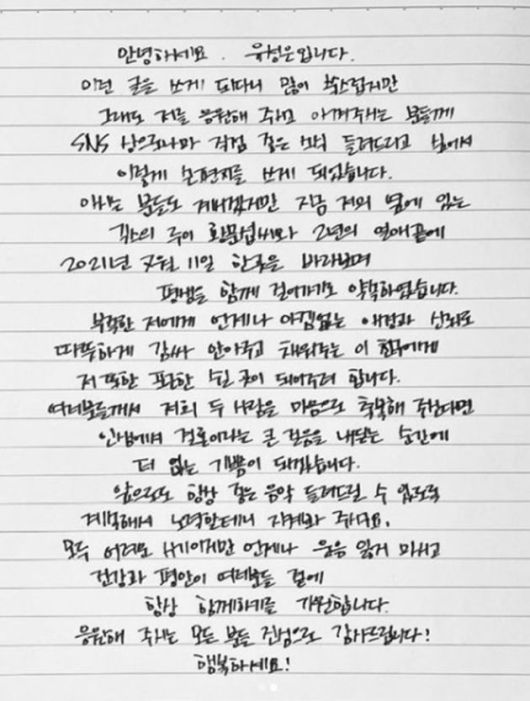 안녕하세요. 유성은입니다.
이런 글을 쓰게 되다니 많이 쑥스럽지만
그래도 저를 응원해 주시고 아껴주시는 분들께
SNS 상으로나마 직접 좋은 소식 들려드리고 싶어서
이렇게 손편지를 쓰게 되었습니다.
아시는 분들도 계시겠지만 지금 저의 옆에 있는
긱스의 루이 황문섭씨와 2년의 연애끝에
2021년 7월 11일 한강을 바라보며
평생을 함께 걸어가기로 약속하였습니다.
부족한 저에게 언제나 아낌없는 애정과 신뢰로
따뜻하게 감싸 안아주고 채워주는 이 친구에게
저 또한 포근한 쉴 곳이 되어주려 합니다.
여러분들께서 저희 두 사람을 마음으로 축복해 주신다면
인생에서 결혼이라는 큰 걸음을 내딛는 순간에
더 없는 기쁨이 되겠습니다.
앞으로도 항상 좋은 음악 들려드릴 수 있도록
계속해서 노력할테니 지켜봐 주세요.
모두 어려운 시기이지만 언제나 웃음 잃지 마시고
건강과 평안이 여러분들 곁에
항상 함께하기를 기원합니다.
응원해 주시는 모든 분들 진심으로 감사드립니다!
행복하세요!